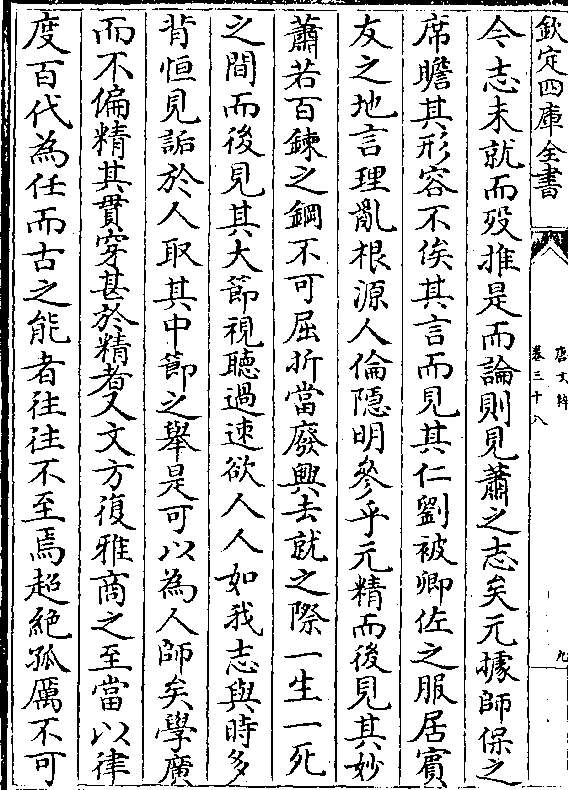 欽定四庫全書
唐文粹
卷三十八
九
今志未就而歿推是而論則見蕭之志矣元據師保之
席瞻其形容不俟其言而見其仁劉被卿佐之服居賓
友之地言理亂根源人倫隱明參乎元精而後見其妙
蕭若百鍊之鋼不可屈折當廢興去就之際一生一死
之間而後見其大節視聽過速欲人人如我志與時多
背恒見詬於人取其中節之舉是可以為人師矣學廣
而不偏精其貫穿甚於精者又文方復雅商之至當以律
度百代為任而古之能者往往不至焉超絶孤厲不可